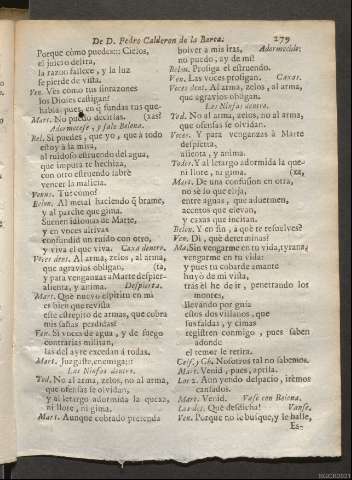 De D. Pedro Calderon de la Barca.
279
Porque còmo pueden:: Cielos,
el juicio delira,
la razon fallece, y la luz
se pierde de vista.
Ven. Ves como tus sinrazones
los Dioses castigan?
habla, pues, en q̃ fundas tus que-
Mart. No puedo decirlas. (xas?
Adormecese, y sale Belona.
Bel. Si puedes, que yo, que à todo
estoy à la mira,
al ruido, el estruendo del agua,
que impura te hechiza,
con otro estruendo sabrè
vencer la malicia.
Venus. Tu? como?
Belon. Al metal haciendo q̃ brame,
y al parche que gima.
Suenen idiomas de Marte,
y en voces altivas
confundid un ruido con otro,
y viva el que viva. Caxa dentro.
Voces dent. Al arma, zelos, al arma,
que agravios obligan, (ta,
y para venganzas à Marte despier-
alienta, y anima. Despierta.
Mart. Què nuevo espiritu en mi
es bien que revista
este estrepito de armas, que cobra
mis sañas perdidas?
Ven. Si voces de agua, y de fuego
contrarias militan,
las del ayre excedan à todas.
Mart. Juzgaste, enemiga::
Las Ninfas dentro.
Tod. No al arma, zelos, no al arma,
que ofensas se olvidan,
y al letargo adormida la quexa,
ni llore, ni gima.
Mart. Aunque cobrado pretenda
bolver à mis iras, Adormecido.
no puedo, ay de mi!
Belon. Prosiga el estruendo.
Ven. Las voces prosigan. Caxas.
Voces dent. Al arma, zelos, al arma,
que agravios obligan.
Las Ninfas dentro.
Tod. No al arma, zelos, no al arma,
que ofensas se olvidan.
Voces. Y para venganzas à Marte
despierta,
alienta, y anima.
Todas. Y al letargo adormida la que-
ni llore, ni gima. (xa,
Mart. De una confusion en otra,
no sè lo que elija,
entre aguas, que aduermen,
acentos que elevan,
y caxas que incitan.
Belon. Y en fin, à què te resuelves?
Ven. Di, què determinas?
Ma. Sin vengarme en tu vida, tyrana,
vengarme en tu vida:
y pues tu cobarde amante
huyò de mi vista,
tras èl he de ir, penetrando los
montes,
llevando por guia
estos dos villanos, que
sus faldas, y cimas
registren conmigo, pues saben
adonde
el temor le retira.
Ces. y Ch. Nosotros tal no sabemos.
Mart. Venid, pues, aprisa.
Los 2. Aun yendo despacio, irèmos
cansados.
Mart. Venid. Vase con Belona.
Los dos. Què desdicha! Vanse.
Ven. Porque no le busque, y le halle,
Es-